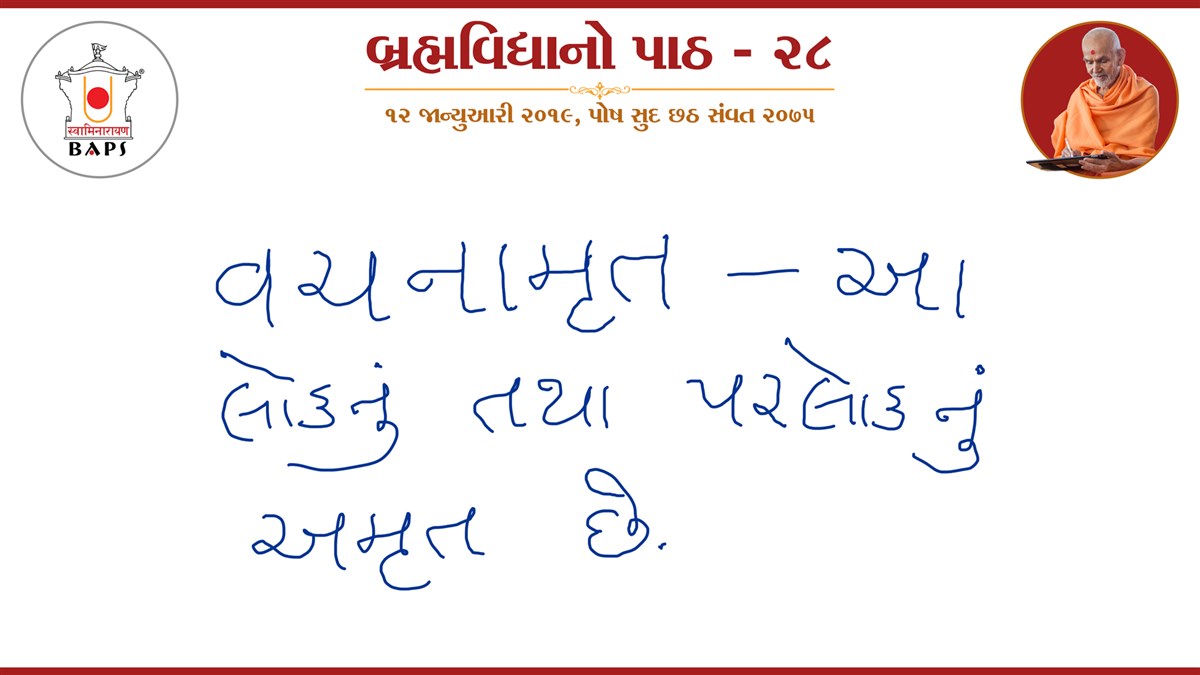 બ્રહ્મવિદ્યાનો પાઠ - ૨૮
૧૨ જાન્યુઆરી ૨૦૧૯, પોષ સુદ છઠ સંવત ૨૦૭૫
स्वामिनारायण
BAPS
વચનામૃત – આ
લોકનું તથા પરલોકનું
અમૃત છે.